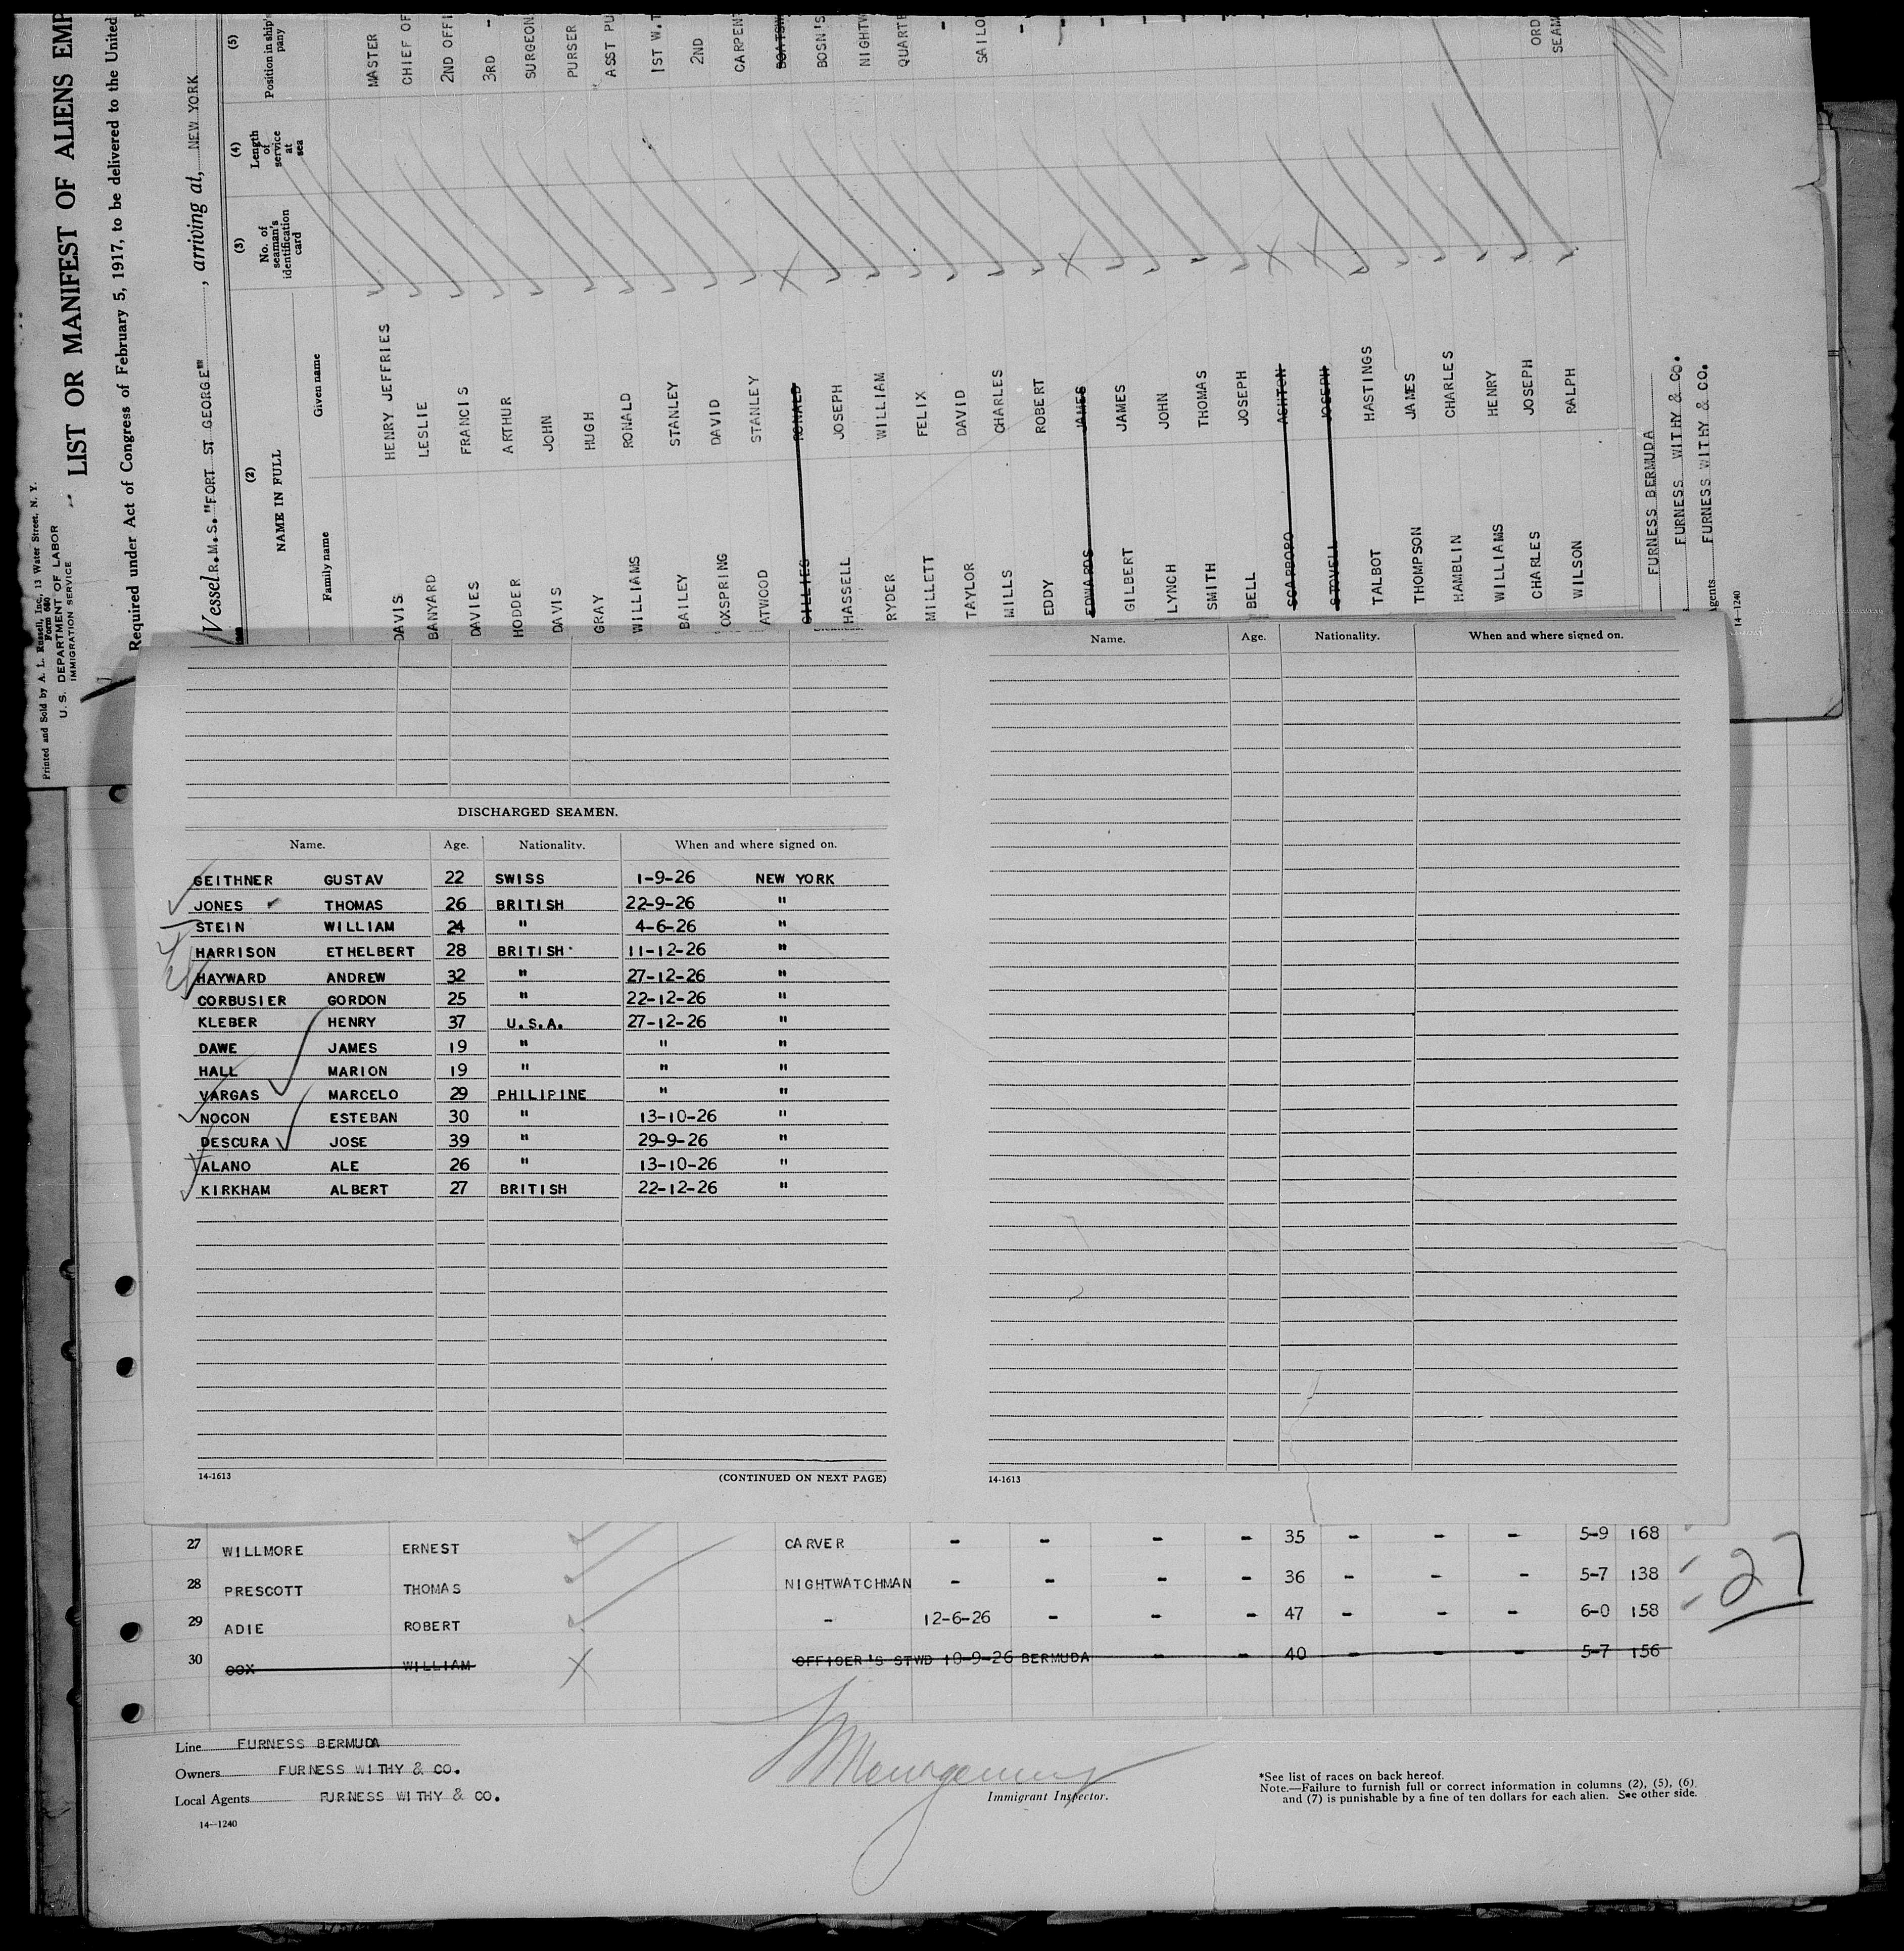 Printed and Sold by A. L. Russell, Inc., 13 Water Street, N. Y.
Form 680
U. S. DEPARTMENT OF LABOR
IMMIGRATION SERVICE
LIST OR MANIFEST OF ALIENS EMP
Required under Act of Congress of February 5, 1917, to be delivered to the United
Vessel R.M.S. "FORT ST GEORGE" , arriving at, NEW YORK
(2) (3) (4) (5)
NAME IN FULL No. of seaman's identification card Length of service at sea Position in ship's pany
Family name Given name
DAVIS HENRY JEFFRIES MASTER
BANYARD LESLIE CHIEF OF
DAVIES FRANCIS 2ND OFFI
HODDER ARTHUR 3RD -
DAVIS JOHN SURGEON
GRAY HUGH PURSER
WILLIAMS RONALD ASST PU
BAILEY STANLEY 1ST W.T
OXSPRING DAVID 2ND
ATWOOD STANLEY CARPENT
GILLIES RONALD BOATSW
HASSELL JOSEPH BOSN'S
RYDER WILLIAM NIGHTW
MILLETT FELIX QUARTE
TAYLOR DAVID -
MILLS CHARLES SAILO
EDDY ROBERT -
EDWARDS JAMES -
GILBERT JAMES -
LYNCH JOHN -
SMITH THOMAS -
BELL JOSEPH -
SCARBORO ASHTON -
STOVELL JOSEPH -
TALBOT HASTINGS
THOMPSON JAMES
HAMBLIN CHARLES
WILLIAMS HENRY
CHARLES JOSEPH ORD SEAM
WILSON RALPH
FURNESS BERMUDA
FURNESS WITHY & CO.
gents FURNESS WITHY & CO.
14-1240
DISCHARGED SEAMEN.
Name. Age. Nationality. When and where signed on.
GEITHNER GUSTAV 22 SWISS 1-9-26 NEW YORK
JONES THOMAS 26 BRITISH 22-9-26 "
STEIN WILLIAM 24 " 4-6-26 "
HARRISON ETHELBERT 28 BRITISH 11-12-26 "
HAYWARD ANDREW 32 " 27-12-26 "
CORBUSIER GORDON 25 " 22-12-26 "
KLEBER HENRY 37 U.S.A. 27-12-26 "
DAWE JAMES 19 " " "
HALL MARION 19 " " "
VARGAS MARCELO 29 PHILIPINE " "
NOCON ESTEBAN 30 " 13-10-26 "
DESCURA JOSE 39 " 29-9-26 "
ALANO ALE 26 " 13-10-26 "
KIRKHAM ALBERT 27 BRITISH 22-12-26 "
14-1613 (CONTINUED ON NEXT PAGE)
Name. Age. Nationality. When and where signed on.
14-1613
27 WILLMORE ERNEST CARVER - - - - 35 - - - 5-9 168
28 PRESCOTT THOMAS NIGHTWATCHMAN - - - - 36 - - - 5-7 138
29 ADIE ROBERT - 12-6-26 - - - 47 - - - 6-0 158
30 COX WILLIAM OFFICER'S STWD 10-9-26 BERMUDA - - 40 - - - 5-7 156
27
Line FURNESS BERMUDA
Owners FURNESS WITHY & CO.
Local Agents FURNESS WITHY & CO.
14-1240
Immigrant Inspector.
*See list of races on back hereof.
Note.—Failure to furnish full or correct information in columns (2), (5), (6)
and (7) is punishable by a fine of ten dollars for each alien. See other side.